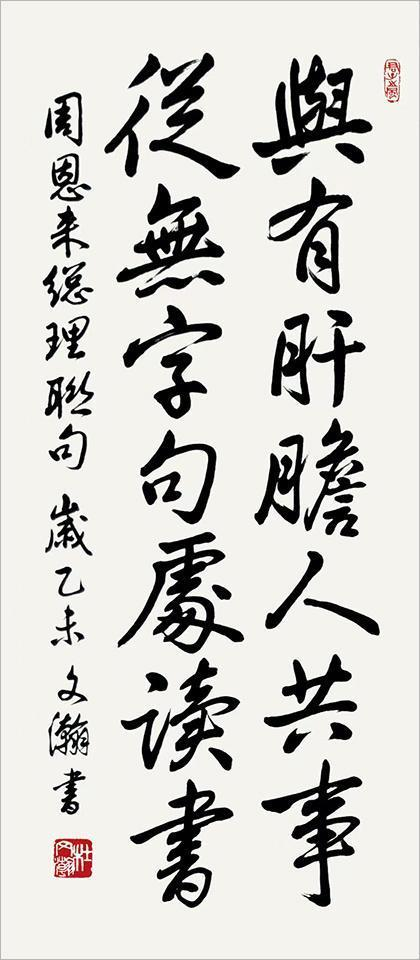 與有肝膽人共事
從無字句處读書
周恩来總理聯句 歲乙未 文瀚書
杜文瀚